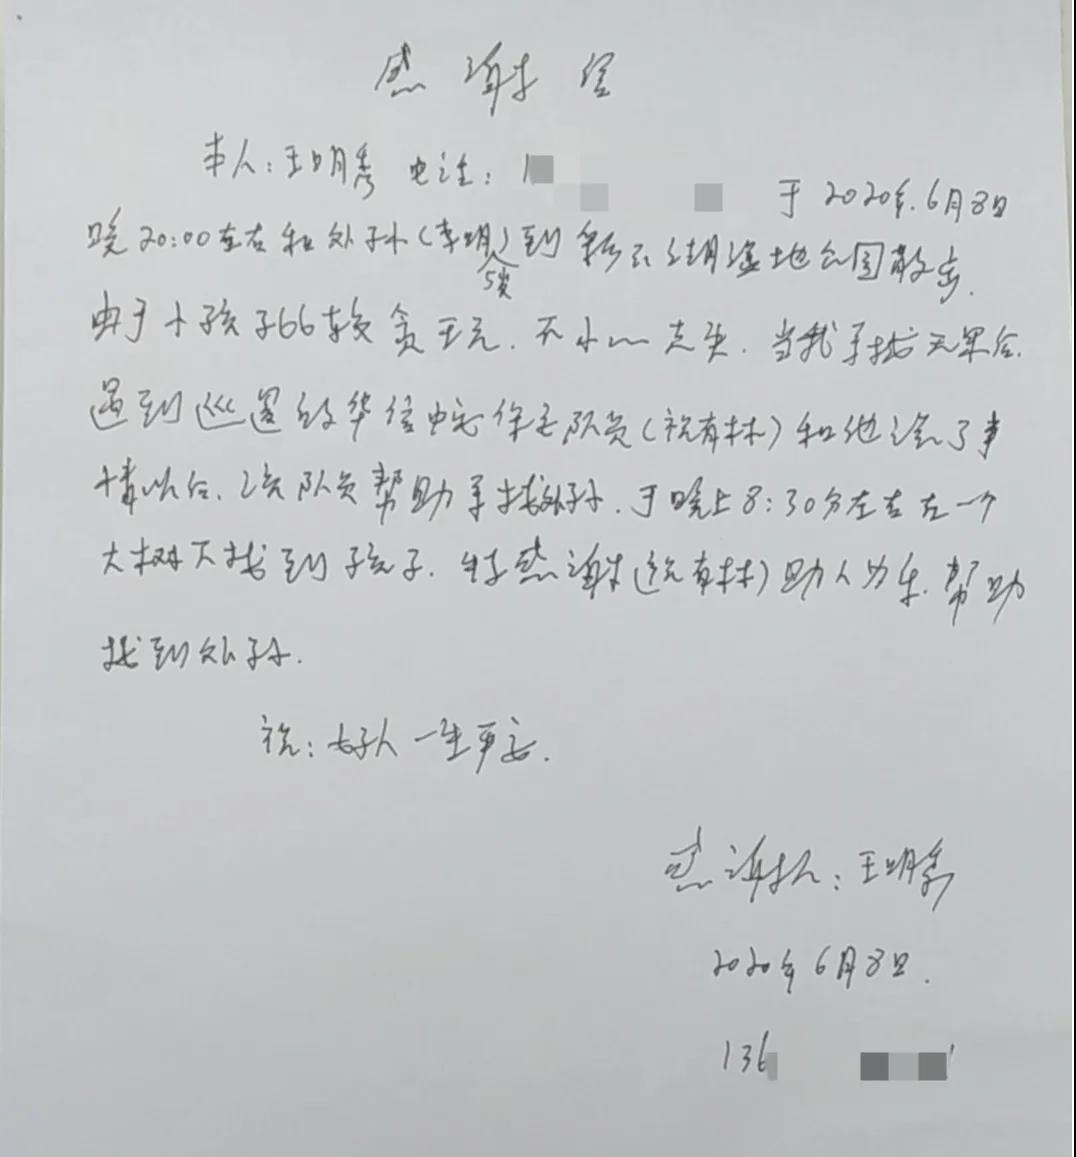 感谢信
本人:王明秀 电话:1 于2020年6月8日
晚20:00左右和外孙(李明)到 湖湿地公园散步.
5岁
由于小孩子比较贪玩,不小心走失.当我寻找无果后,
遇到巡逻的华信中安保安队员(祝有林)和他说了事
情以后,该队员帮助寻找外孙.于晚上8:30分左右在一个
大树下找到孩子.特感谢(祝有林)助人为乐.帮助
找到外孙.
祝:好人一生平安.
感谢人:王明秀
2020年6月8日.
136